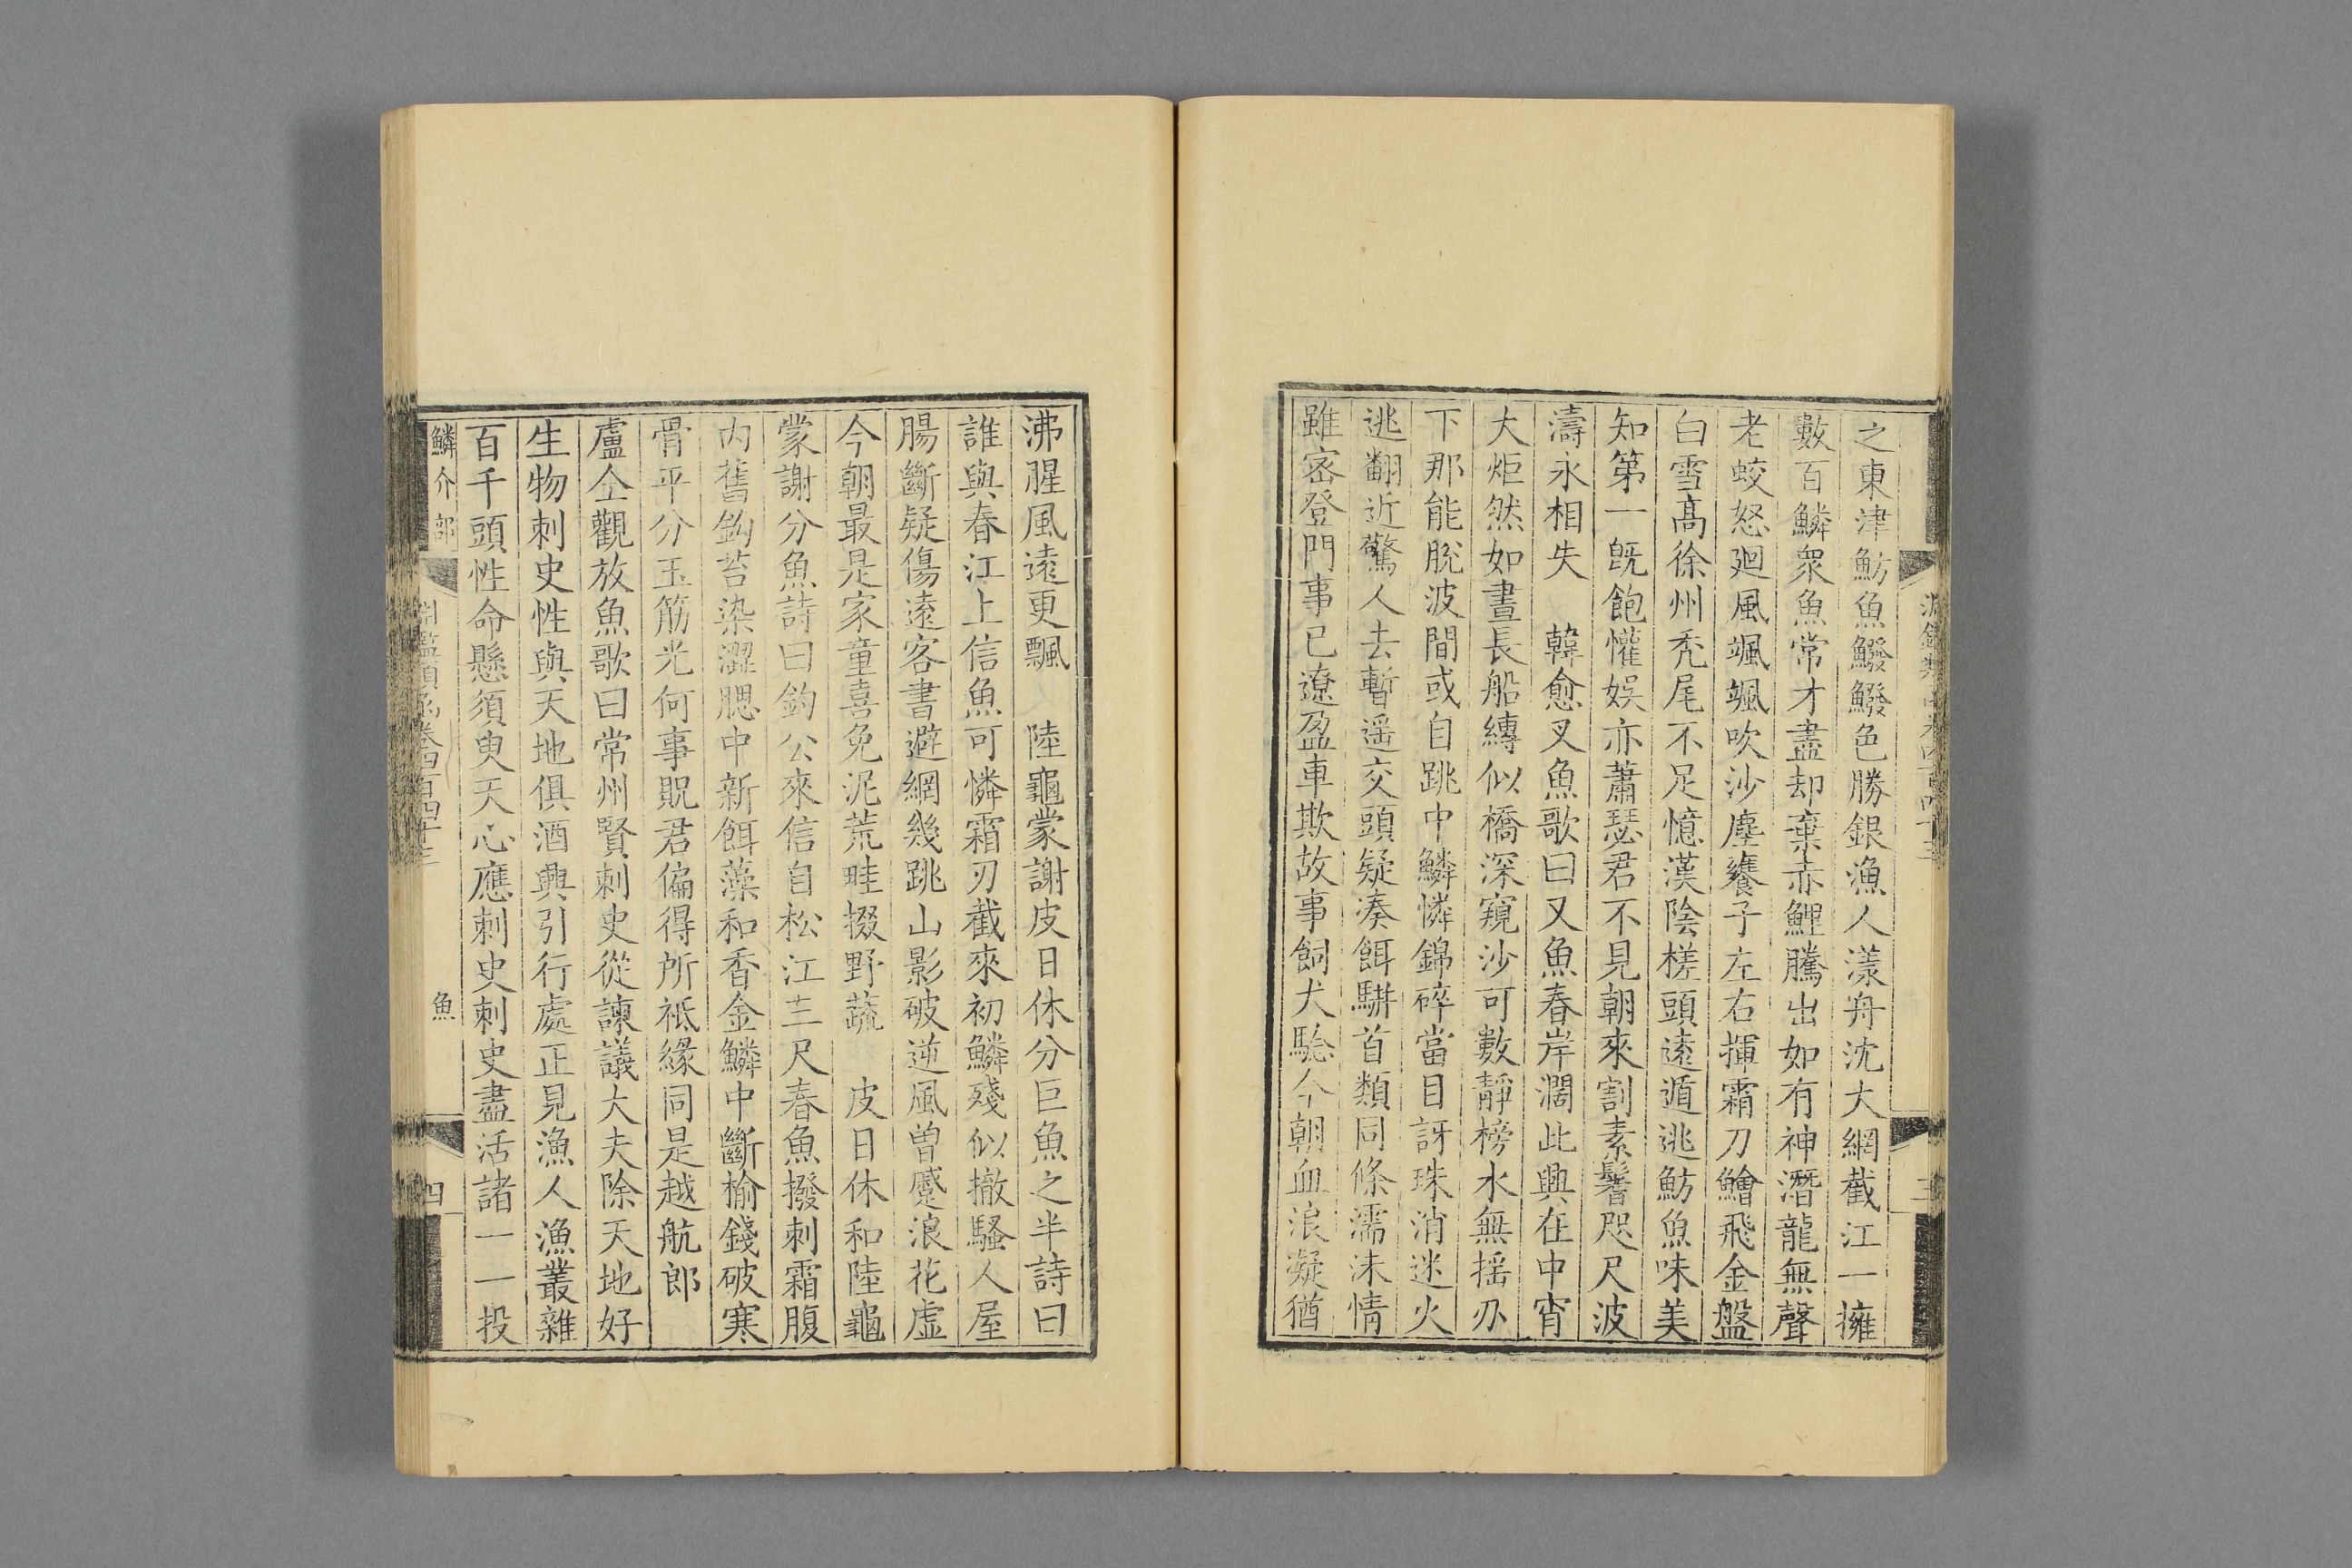 之東津魴魚鱍鱍色勝銀漁人漾舟沈大網截江一擁
數百鱗衆魚常才盡却棄赤鯉騰出如有神潛龍無聲
老蛟怒廻風颯颯吹沙塵饔子左右揮霜刀鱠飛金盤
白雪高徐州秃尾不足憶漢陰槎頭遠遁逃魴魚味美
知第一旣飽懽娛亦蕭瑟君不見朝來割素鬐咫尺波
濤永相失　韓愈叉魚歌曰叉魚春岸濶此興在中宵
大炬然如晝長船縳似橋深窺沙可數靜榜水無搖刅
下那能脫波間或自跳中鱗憐錦碎當目訝珠消迷火
逃翻近驚人去暫遥交頭疑凑餌駢首類同條濡沫情
雖密登門事已遼盈車欺故事飼犬驗今朝血浪凝猶
沸腥風遠更飄　陸龜蒙謝皮日休分巨魚之半詩曰
誰與春江上信魚可憐霜刃截來初鱗殘似撤騷人屋
腸斷疑傷遠客書避網幾跳山影破逆風曾蹙浪花虛
今朝最是家童喜免泥荒畦掇野蔬　皮日休和陸龜
蒙謝分魚詩曰釣公來信自松江三尺春魚撥刺霜腹
內舊鈎苔染澀腮中新餌藻和香金鱗中斷榆錢破寒
骨平分玉筋光何事貺君偏得所祗緣同是越航郎
盧仝觀放魚歌曰常州賢刺史從諫議大夫除天地好
生物刺史性與天地俱酒興引行處正見漁人漁叢雜
百千頭性命懸須臾天心應刺史刺史盡活諸一一投
鱗介部
淵鑑類函卷四百四十三
魚
四